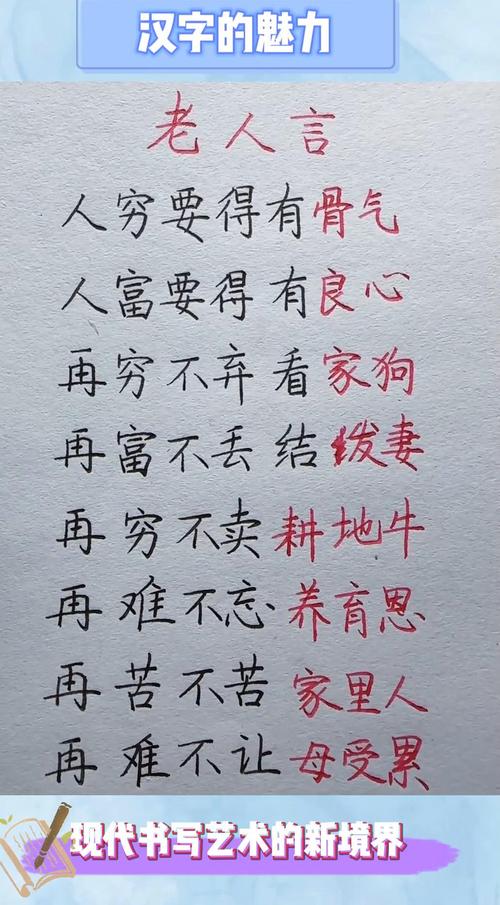 汉字的魅力
老人言
人穷要得有骨气
人富要得有良心
再穷不弃看家狗
再富不丢结发妻
再穷不卖耕地牛
再难不忘养育恩
再苦不苦家里人
再难不让母受累
现代书写艺术的新境界